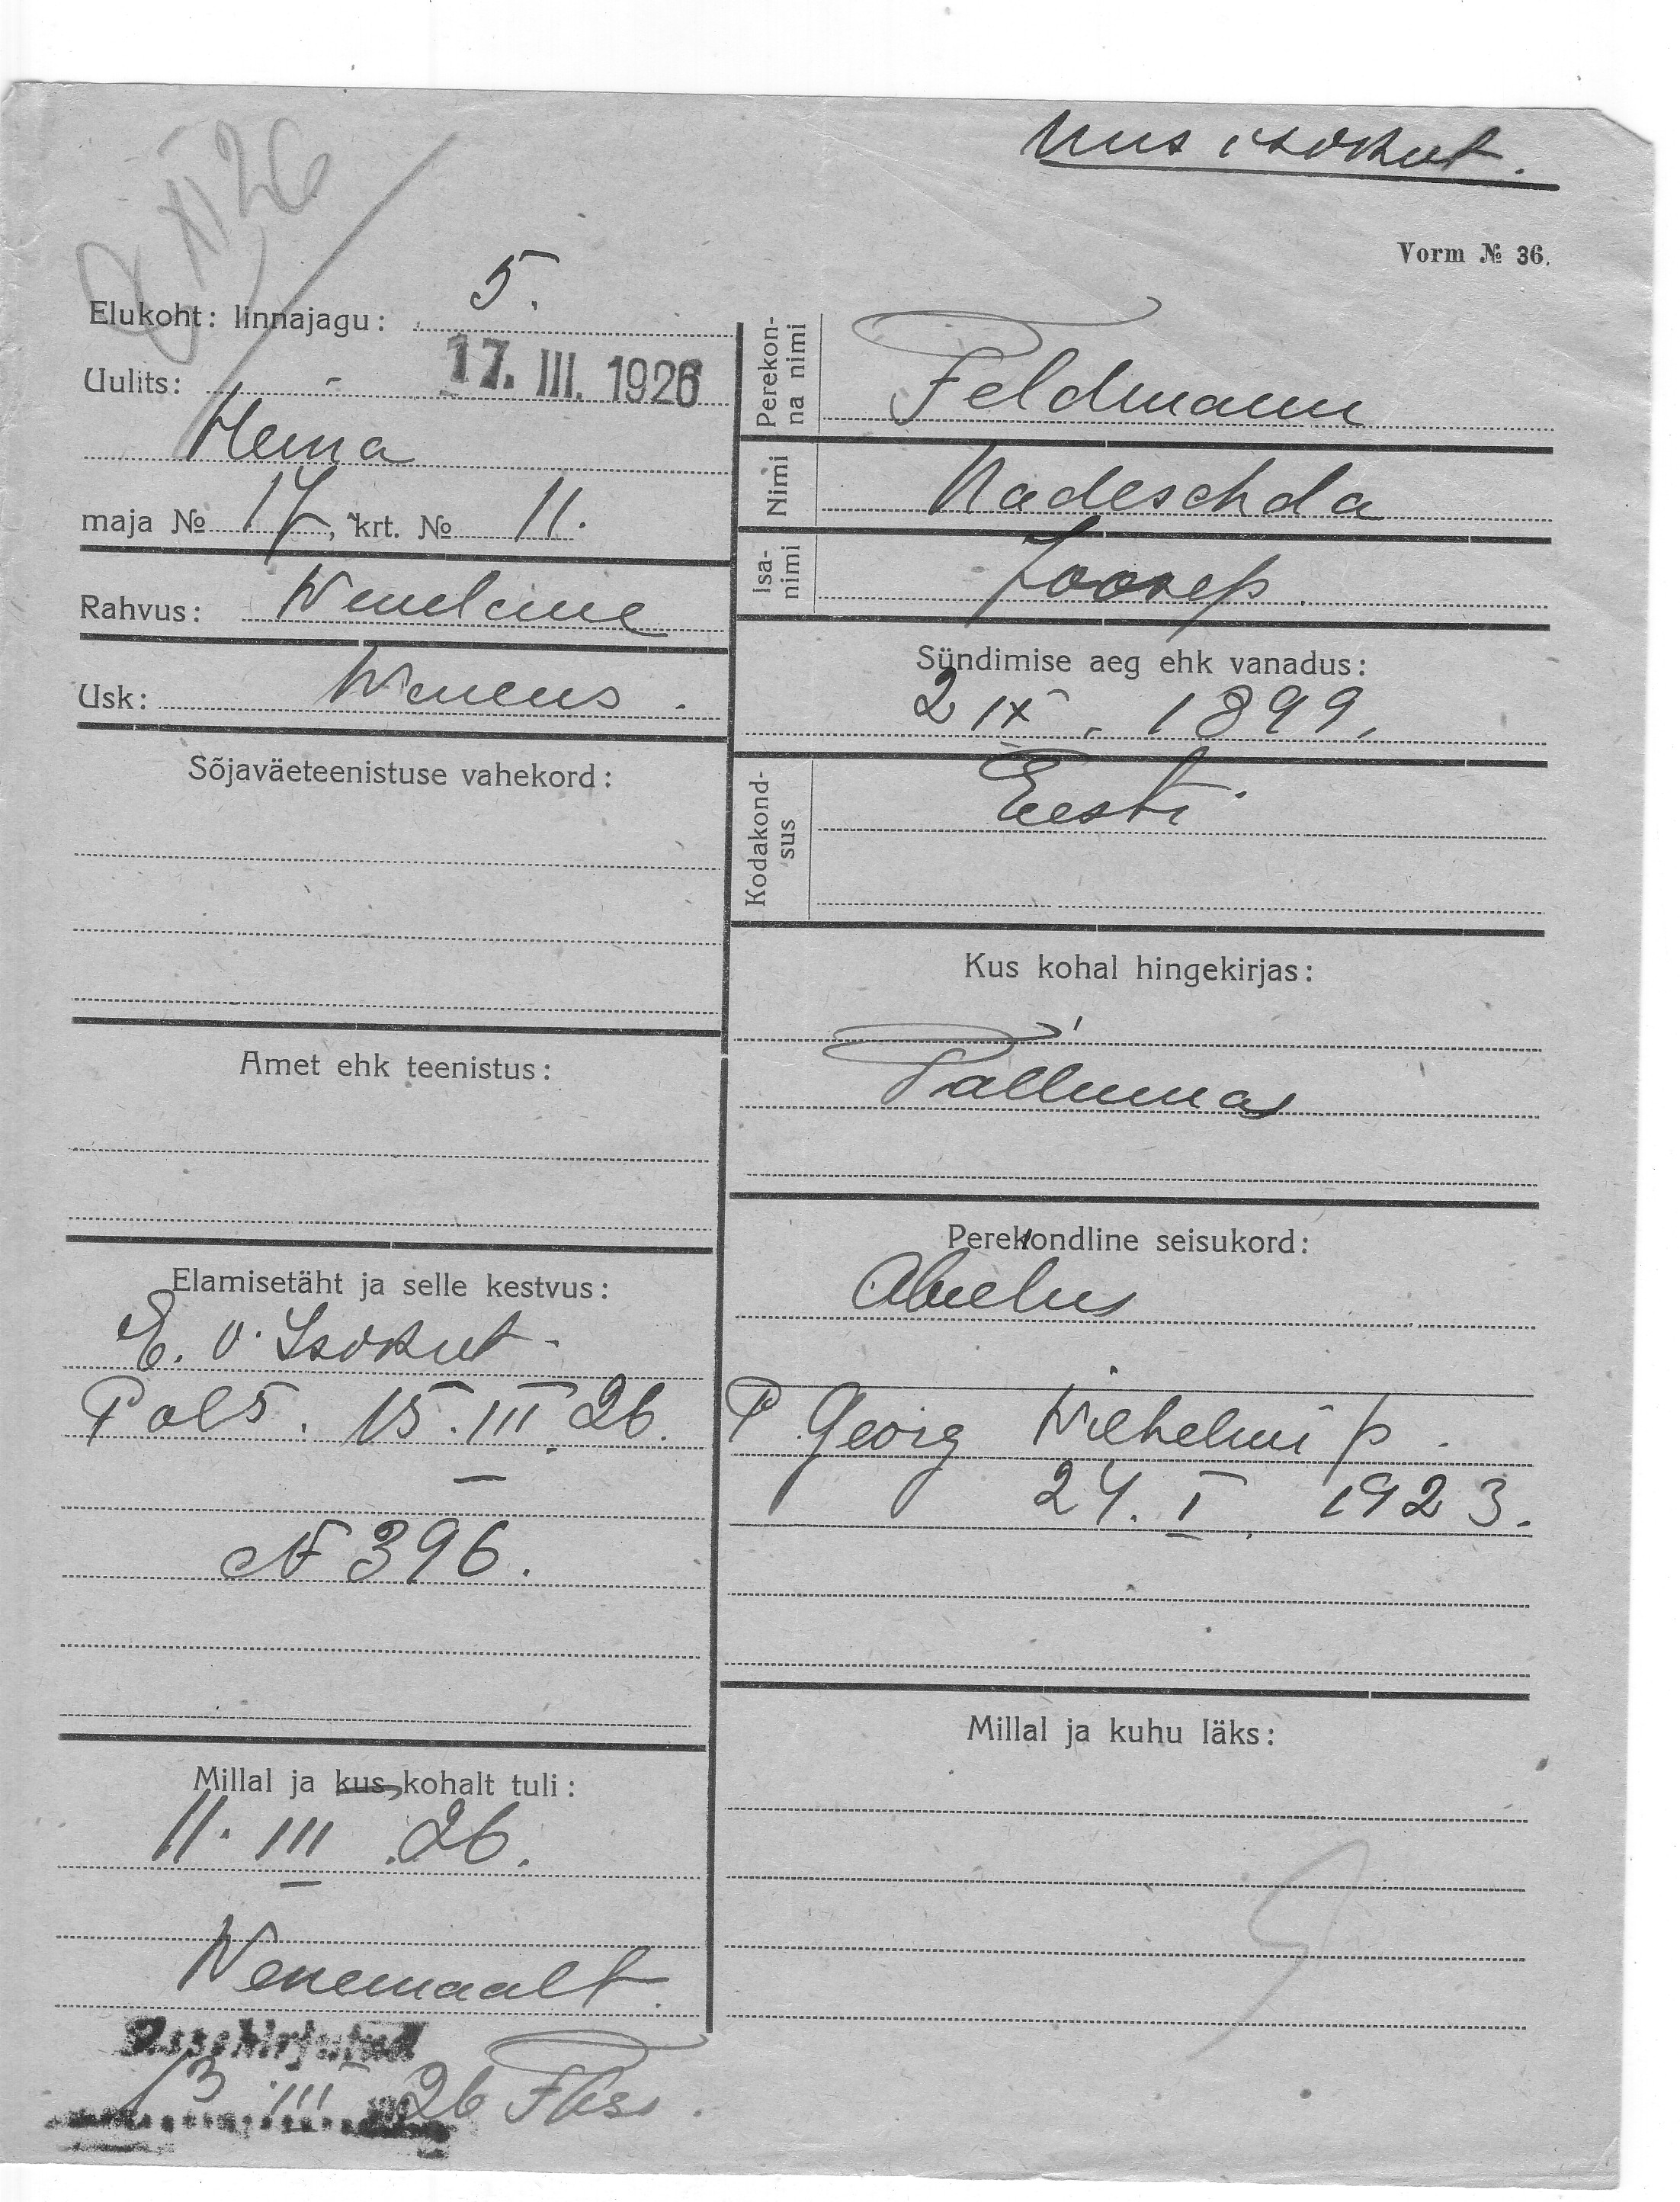 Uus isokut.
XI 26
Vorm № 36.
Elukoht: linnajagu: 5.
Uulits: 17. III. 1926
Hema
maja № 17, krt. № 11.
Rahvus: Wenelane
Usk: Weneus.
Sõjaväeteenistuse vahekord:
Amet ehk teenistus:
Elamisetäht ja selle kestvus:
E. V. Isokut
Pol 5. 15. III. 26.
№ 396.
Millal ja kus kohalt tuli:
11. III. 26.
Wenemaalt.
Sissekirjutud
13 III 26
Perekon-
na nimi Feldmann
Nimi Nadeschda
Isa-
nimi Joosep.
Sündimise aeg ehk vanadus:
2 IX. 1899.
Kodakond-
sus Eesti
Kus kohal hingekirjas:
Tallinnas
Perekondline seisukord:
Abielus
P Georg Wilhelmi p.
24. I. 1923.
Millal ja kuhu läks: